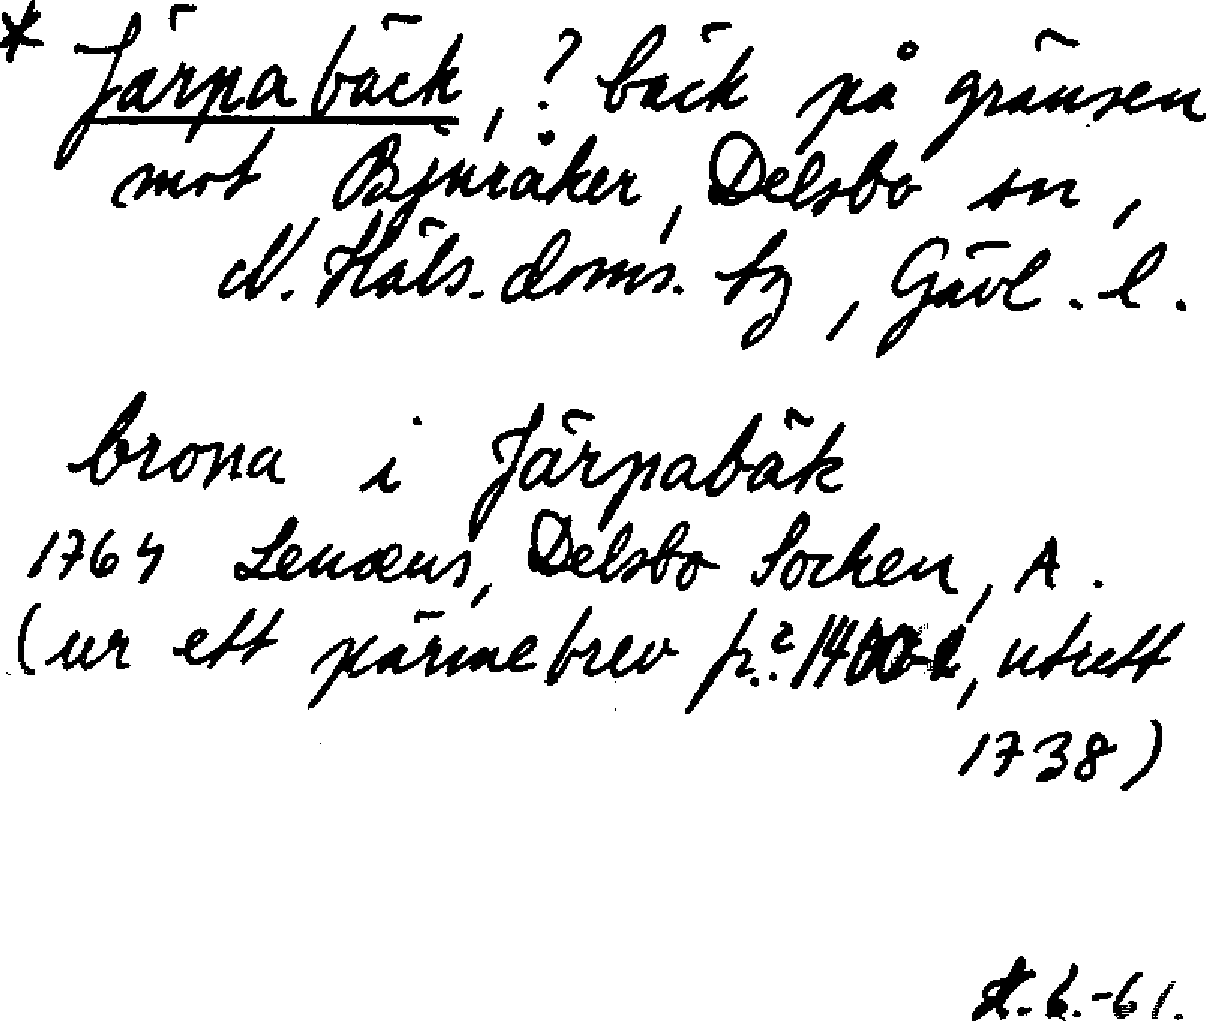 * Järpabäck, ? bäck på gränsen
mot Bjuråker, Delsbo sn,
N. Häls. doms. tg, Gävl. l.
brona i Järpabäk
1764 Lenæus, Delsbo Socken, A.
(ur ett pärmebrev
utrett
1738)
-61.